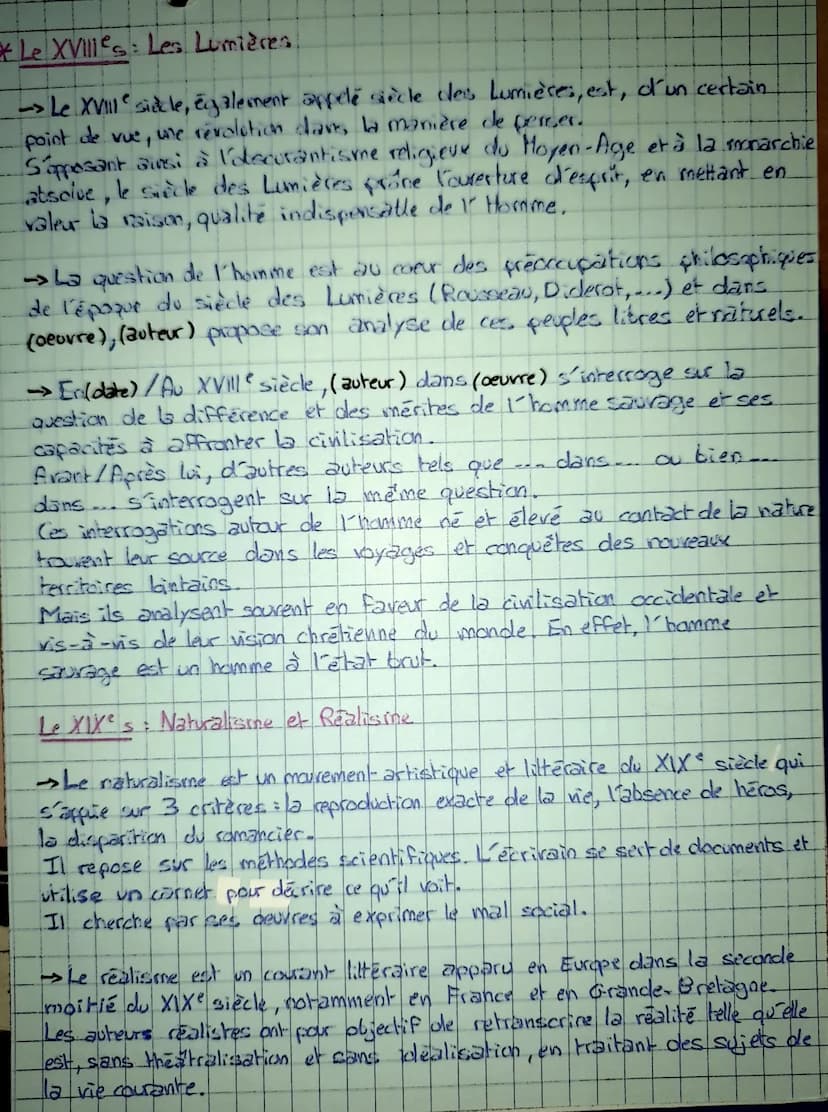 * Le XVIIIe s : Les Lumières
→ Le XVIIIe siècle, également appelé siècle des Lumières, est, d'un certain
point de vue, une révolution dans la manière de penser.
S'opposant ainsi à l'obscurantisme religieux du Moyen-Age et à la monarchie
absolue, le siècle des Lumières prône l'ouverture d'esprit, en mettant en
valeur la raison, qualité indispensable de l'Homme.
→ La question de l'homme est au coeur des préoccupations philosophiques
de l'époque du siècle des Lumières (Rousseau, Diderot, ...) et dans
(oeuvre), (auteur) propose son analyse de ces peuples libres et naturels.
→ En (date) / Au XVIIIe siècle, (auteur) dans (oeuvre) s'interroge sur la
question de la différence et des mérites de l'homme sauvage et ses
capacités à affronter la civilisation.
Avant/Après lui, d'autres auteurs tels que ... dans ... ou bien ...
dans ... s'interrogent sur la même question.
Ces interrogations autour de l'homme né et élevé au contact de la nature
trouvent leur source dans les voyages et conquêtes des nouveaux
territoires lointains.
Mais ils analysent souvent en faveur de la civilisation occidentale et
vis-à-vis de leur vision chrétienne du monde. En effet, l'homme
sauvage est un homme à l'état brut.
Le XIXe s : Naturalisme et Réalisme
→ Le naturalisme est un mouvement artistique et littéraire du XIXe siècle qui
s'appuie sur 3 critères : la reproduction exacte de la vie, l'absence de héros,
la disparition du romancier.
Il repose sur les méthodes scientifiques. L'écrivain se sert de documents et
utilise un carnet pour décrire ce qu'il voit.
Il cherche par ses oeuvres à exprimer le mal social.
→ Le réalisme est un courant littéraire apparu en Europe dans la seconde
moitié du XIXe siècle, notamment en France et en Grande-Bretagne.
Les auteurs réalistes ont pour objectif de retranscrire la réalité telle qu'elle
est, sans théâtralisation et sans idéalisation, en traitant des sujets de
la vie courante.